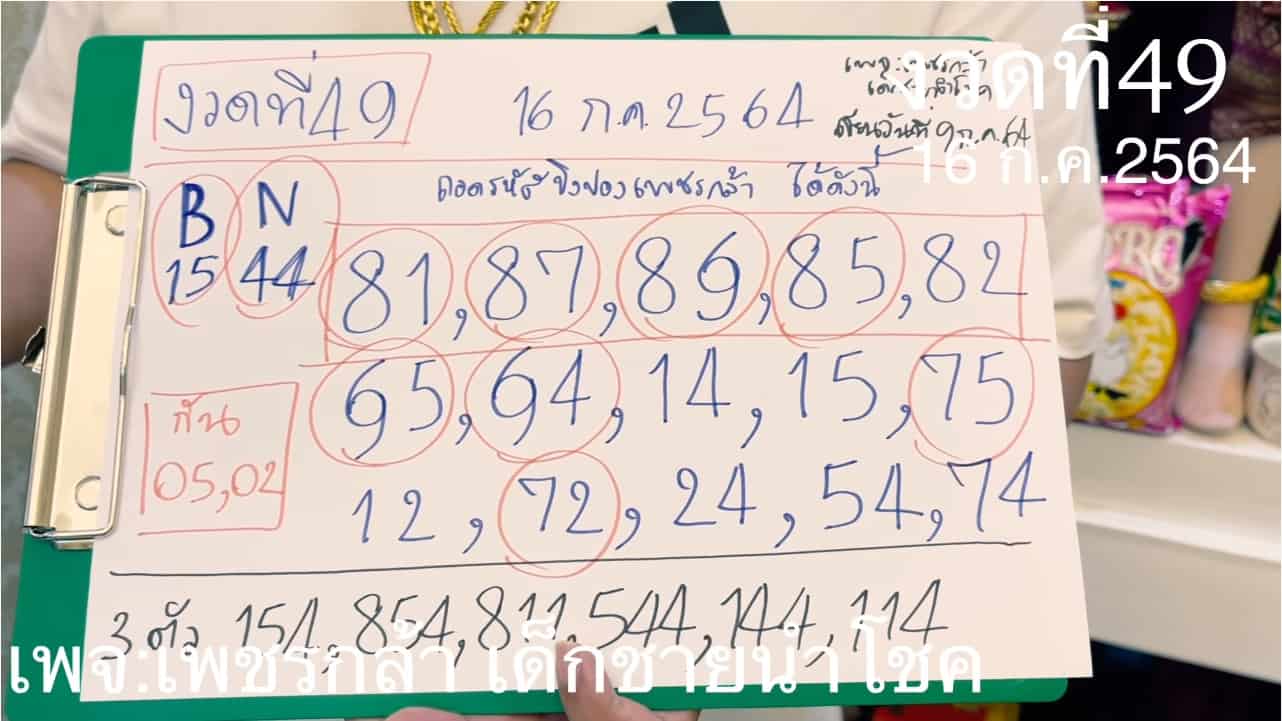 งวดที่49
16 ก.ค.2564
เพจ:เพชรกล้า
เด็กชายนำโชค
เขียนวันที่ 9 ก.ค.64
งวดที่49
16 ก.ค.2564
ถอดรหัส ปิงปองเพชรกล้า ได้ดังนี้
B N
15 44
81,87,89,85,82
65,64,14,15,75
กัน
05,02
12,72,24,54,74
3 ตัว 154,854,811,544,144,114
เพจ:เพชรกล้า เด็กชายนำโชค